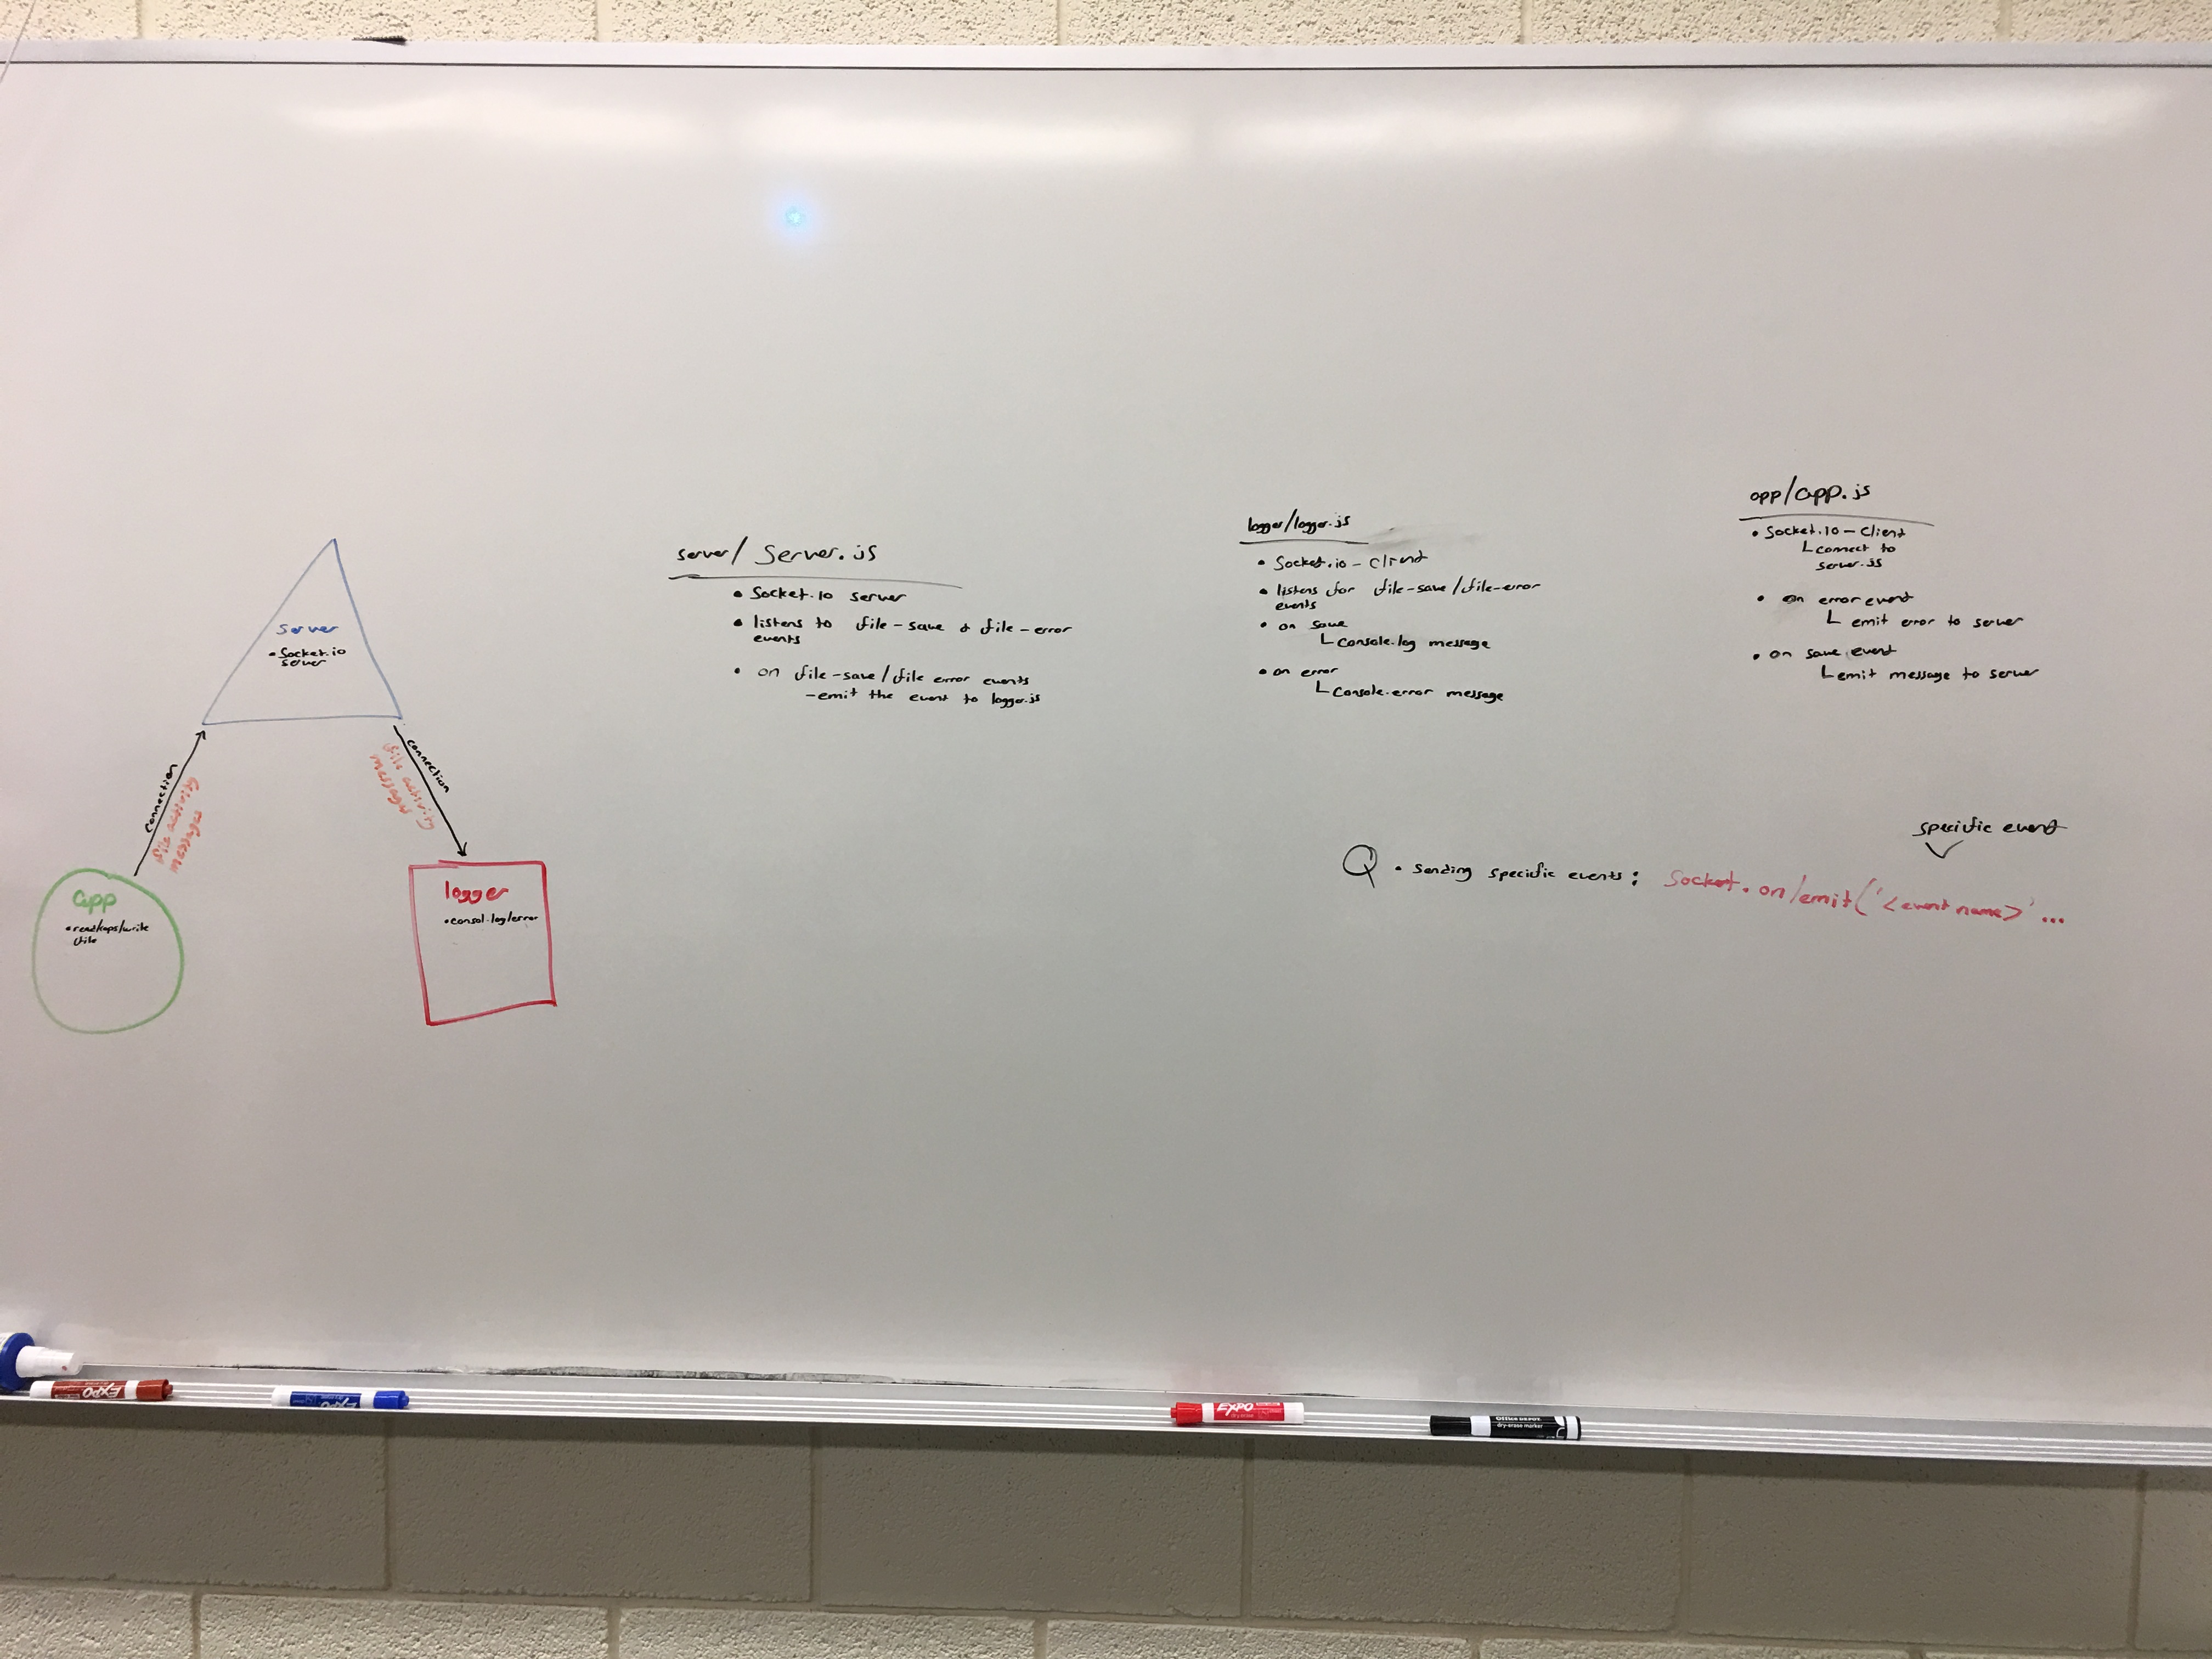 Server
• Socket.io
server
connection
file activity
messages
connection
file activity
messages
app
• read/caps/write
file
logger
• consol.log/error
server/Server.js
• Socket.io server
• listens to file-save & file-error
events
• on file-save/file error events
-emit the event to logger.js
logger/logger.js
• Socket.io-client
• listens for file-save/file-error
events
• on save
Console.log message
• on error
Console.error message
app/app.js
• Socket.io-client
connect to
server.js
• on error event
emit error to server
• on save event
emit message to server
specific event
Q • sending specific events: Socket.on/emit('<event name>'...
EXPO
EXPO
EXPO
dry erase
OFFICE DEPOT
dry-erase marker